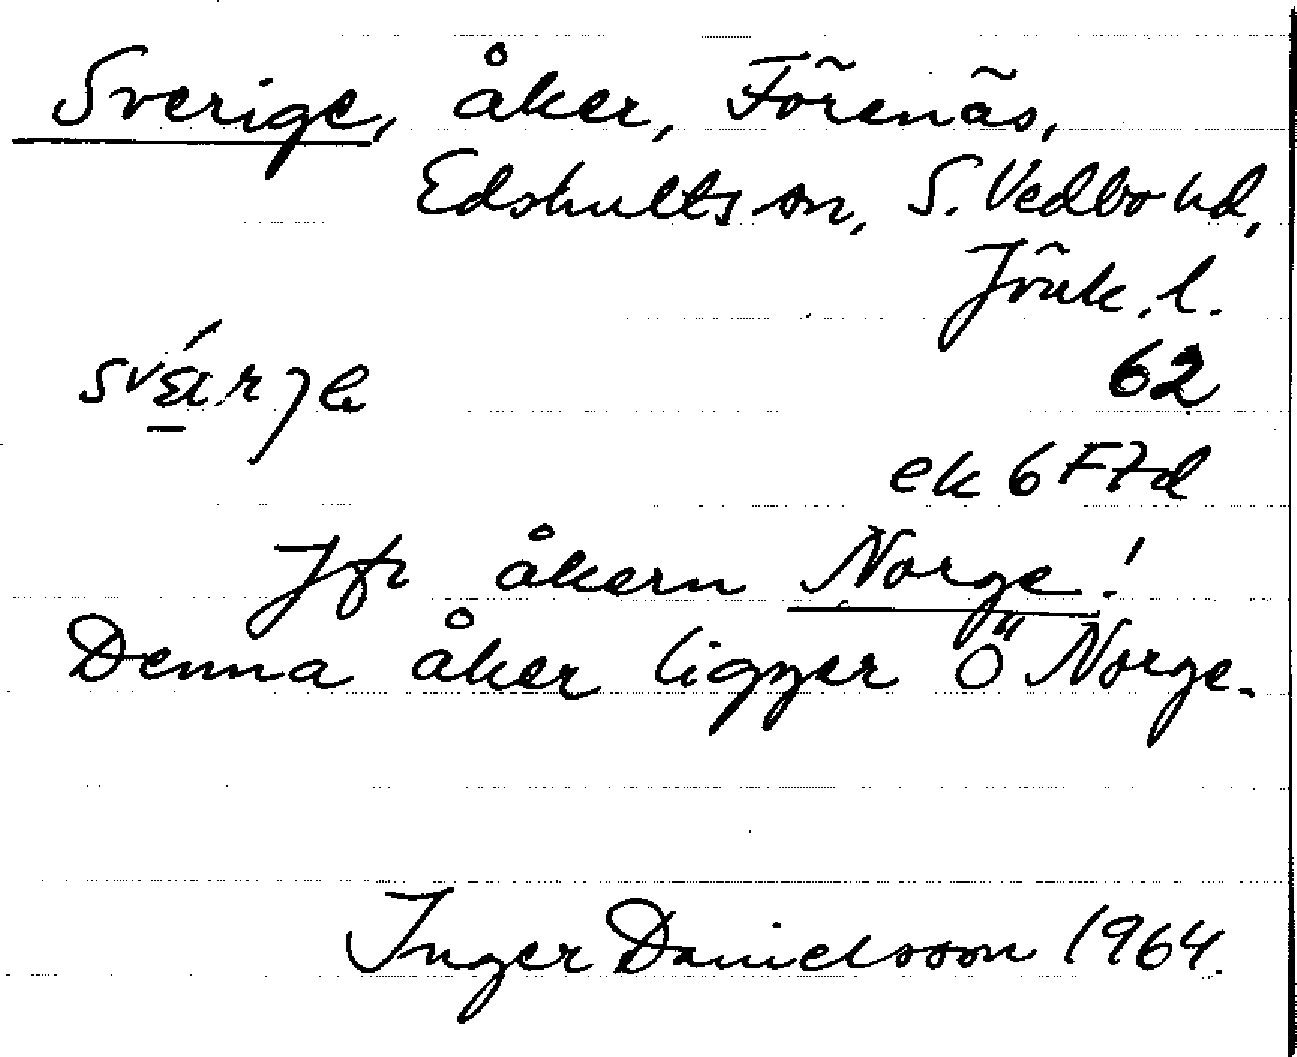 Sverige, åker, Förenäs,
Edshults sn, S. Vedbo hd,
Jönk. l.
62
ek 6F7d
Jfr åkern Norge!
Denna åker ligger Ö Norge.
Inger Danielsson 1964.